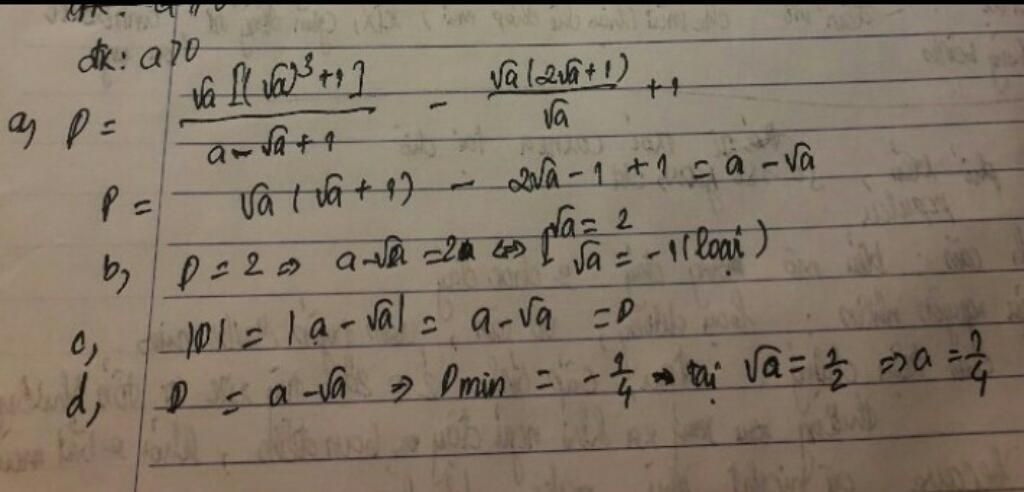 đk: a>0
a, P = √a [(√a)³ + 1] / a - √a + 1 - √a (2√a + 1) / √a + 1
P = √a (√a + 1) - 2√a - 1 + 1 = a - √a
b, P = 2 => a - √a = 2 <=> [√a = 2
√a = -1 (loại)
c, |P| = |a - √a| = a - √a = P
d, P = a - √a => Pmin = -1/4 tại √a = 1/2 => a = 1/4